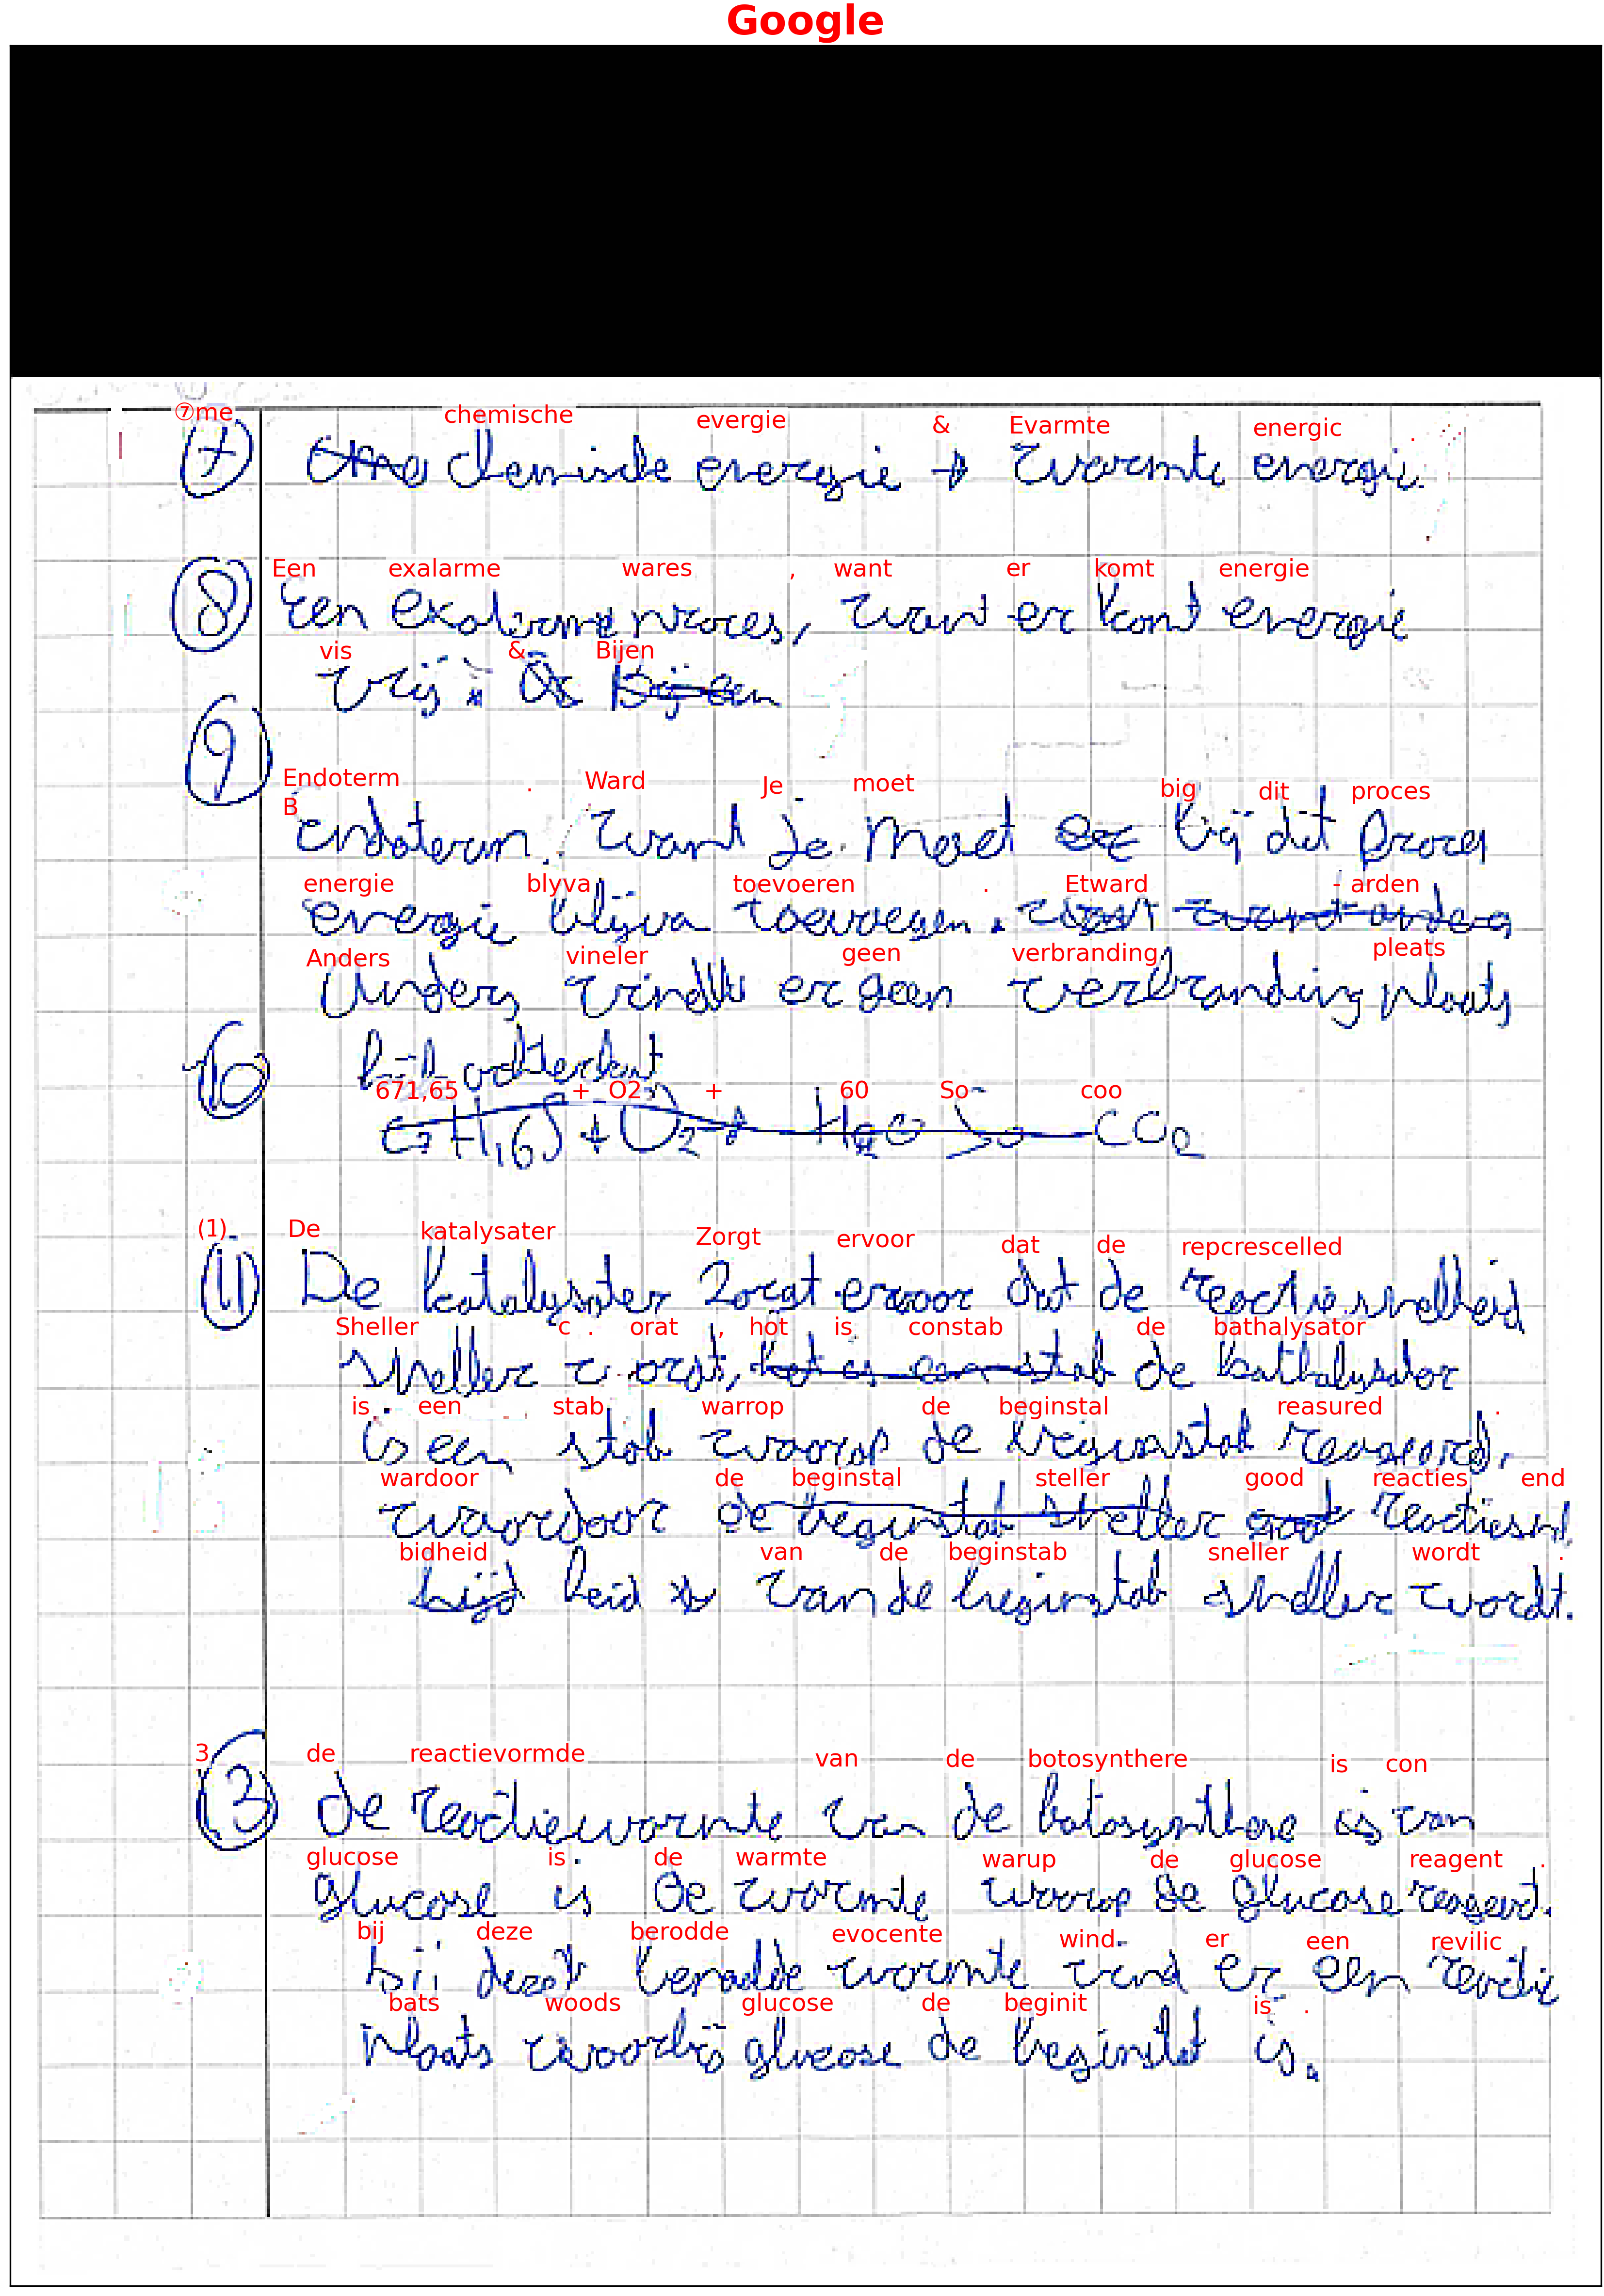 Google
⑦me chemische evergie & Evarmte energic .
⑦ chemische energie → warmte energie.
Een exalarme wares , want er komt energie
⑧ Een exoterme proces, want er komt energie
vis & Bijen
vrij.
⑨
Endoterm . Ward Je moet big dit proces
B
Endoterm. Want je moet bij dit proces
energie blyva toevoeren . Etward - arden
energie blijva toevoegen.
Anders vineler geen verbranding pleats
Anders vindt er geen verbranding plaats
⑩ kijk achterkant
671,65 + O2 + 60 So coo
(1) De katalysater Zorgt ervoor dat de repcrescelled
⑪ De katalysator zorgt ervoor dat de reactiesnelheid
Sheller c . orat , hot is constab de bathalysator
sneller wordt, de kathalysator
is een stab warrop de beginstal reasured .
is een stof waarop de beginstof reageerd.
wardoor de beginstal steller good reacties end
waardoor de reactiesnel
bidheid van de beginstab sneller wordt .
heid van de beginstof sneller wordt.
3 de reactievormde van de botosynthere is con
⑬ de reactiewarmte van de fotosynthese is van
glucose is de warmte warup de glucose reagent .
glucose is de warmte waarop de glucose reageert.
bij deze berodde evocente wind er een revilic
bij deze warmte vind er een reactie
bats woods glucose de beginit is .
plaats waarbij glucose de beginstof is.